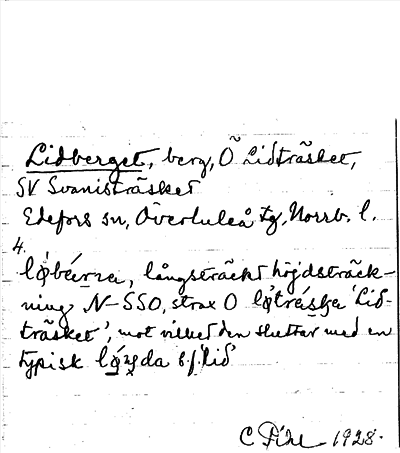 Lidberget, berg, Ö Lidträsket,
SV Svanisträsket
Edefors sn, Överluleå tg, Norrb. l.
4.
långsträckt höjdsträck-
ning N-SSO, strax O 'Lid-
träsket', mot vilket den sluttar med en
typisk b.f. 'lid'
C Pihl 1928.